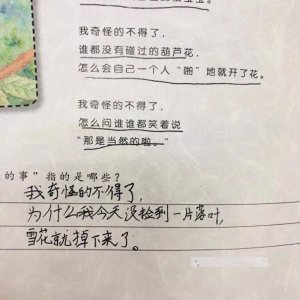 我奇怪的不得了，
谁都没有碰过的葫芦花，
怎么会自己一个人“啪”地就开了花。
我奇怪的不得了，
怎么问谁谁都笑着说
“那是当然的啦。”
的事”指的是哪些？
我奇怪的不得了，
为什么我今天没捡到一片落叶，
雪花就掉下来了。